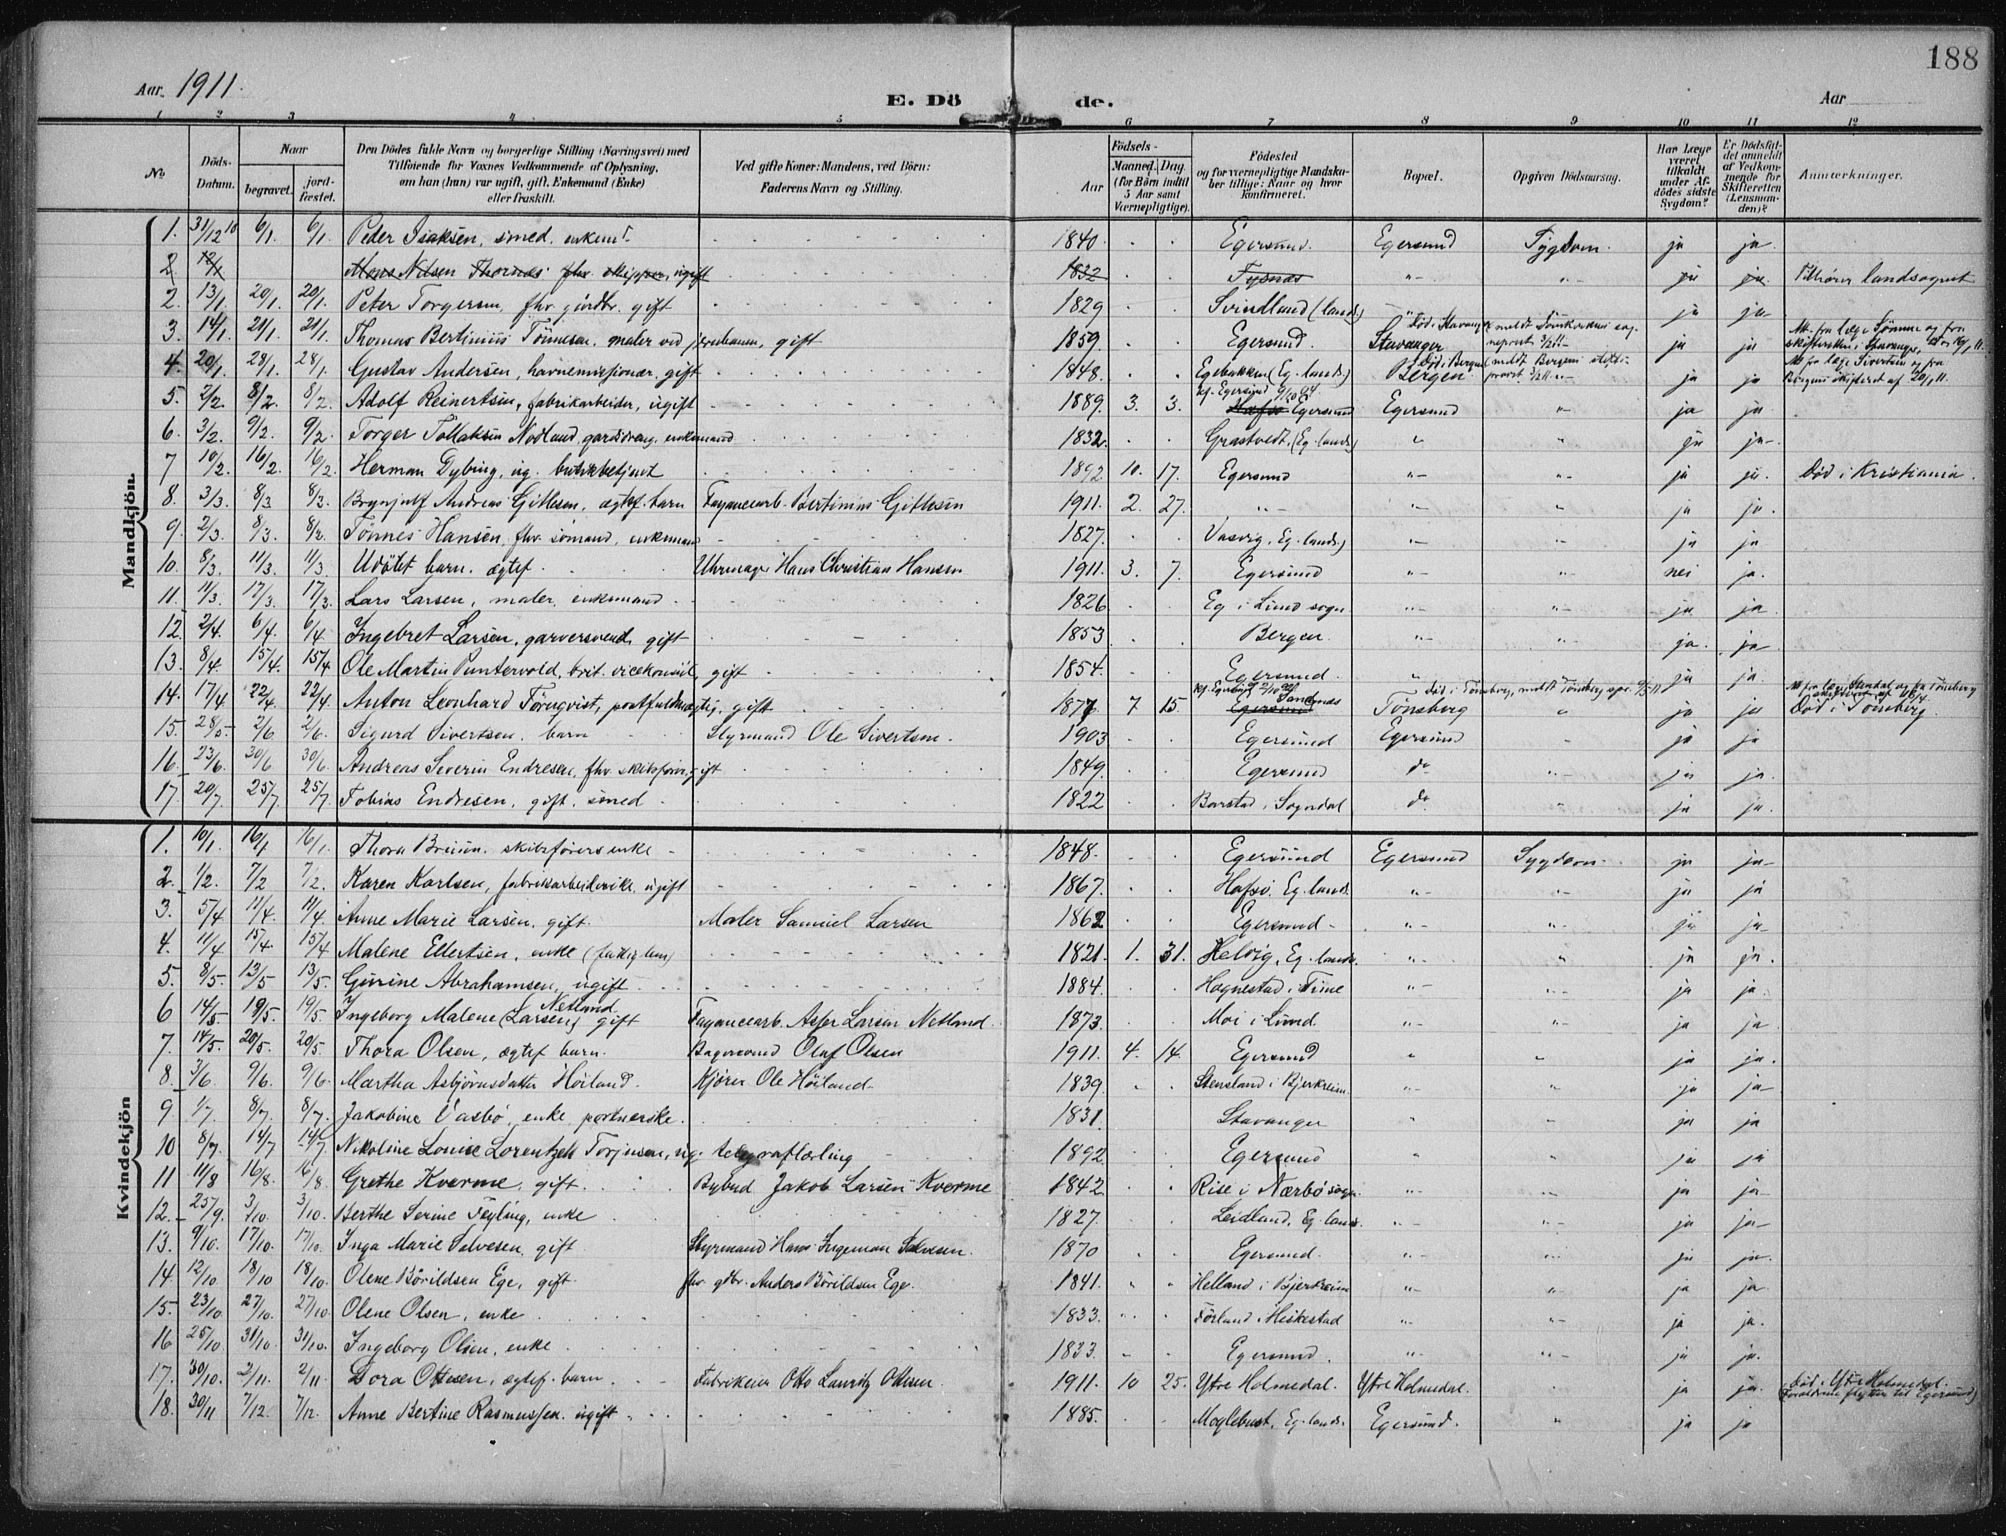 188
Aar 1911.
E. Dö de.
Aar
1 2 3 4 5 6 7 8 9 10 11 12
No. Döds-Datum. Naar begravet. jordfæstet. Den Dödes fulde Navn og borgerlige Stilling (Næringsvei) med Tilföiende for Voxnes Vedkommende af Oplysning, om han (hun) var ugift, gift, Enkemand (Enke) eller fraskilt. Ved gifte Koner: Mandens, ved Börn: Faderens Navn og Stilling. Födsels- Aar Maaned. Dag. (for Börn indtil 5 Aar samt Værnepligtige). Födested og for værnepligtige Mandskaber tillige: Naar og hvor konfirmeret. Bopæl. Opgiven Dödsaarsag. Har Læge været tilkaldt under Afdödes sidste Sygdom? Er Dödsfaldet anmeldt af Vedkommende for Skifteretten (Lensmanden)? Anmærkninger.
Mandkjön.
1. 31/12 10 6/1. 6/1. Peder Isaksen, smed, enkem. 1840. Egersund. Egersund Sygdom. ja ja.
2 12/1 Mons Nilsen Thornæs fhv. skipper, ugift 1832 Tysnæs "- "- ja ja. Tilhører landsognet
2. 13/1. 20/1. 20/1. Peter Torgersen, fhv. gårdbr. gift 1829 Svindland (lands.) ja ja-
3. 14/1. 21/1. 21/1. Thomas Bertinius Tönnesen, maler ved jernbanen, gift 1859. Egersund. Stavanger Död i Stavanger ja ja
4. 20/1. 28/1. 28/1. Gustav Andersen, havnemissionær, gift 1848. Egebakken (Eg. lands.) Bergen Död i Bergen ja ja
5. 2/2. 8/2. 8/2. Adolf Reinertsen, fabrikarbeider, ugift 1889. 3. 3. Hafsö Egersund Egersund "- ja ja
6. 3/2. 9/2. 9/2. Torger Tollaksen Nodland, gardsdreng, enkemand 1832. Grastvedt, (Eg. lands.) " " ja ja-
7 10/2. 16/2. 16/2. Herman Dybing, ug. butikbetjent 1892 10. 17. Egersund "- "- ja ja. Död i Kristiania.
8. 3/3. 8/3 8/3. Brynjulf Andreas Gitlesen, ægtef. barn Fayancearb. Bertinius Gitlesen 1911. 2. 27. "- "- "- ja ja.
9. 2/3. 8/3. 8/3. Tönnes Hansen, fhv. sömand, enkemand 1827. Vasvig, Eg. lands.) "- "- ja ja
10. 8/3. 11/3. 11/3 Udöbt barn. ægtef. Uhrmager Hans Christian Hansen 1911. 3. 7. Egersund "- "- nei ja.
11. 11/3. 17/3. 17/3. Lars Larsen, maler, enkemand 1826. Eg i Lund sogn "- "- ja ja.
12. 2/4. 6/4. 6/4 Ingebret Larsen, garversvend, gift 1853 Bergen. "- "- ja. ja.
13. 8/4. 15/4. 15/4 Ole Martin Puntervold, brit. vicekonsul, gift 1854. Egersund. " ja ja.
14. 17/4 22/4 22/4 Anton Leonhard Törnqvist, postfuldmægtig, gift 1877 7 15 Egersund Sandnæs Tönsberg " ja ja Död i Tönsberg
15. 28/5. 2/6 2/6. Sigurd Sivertsen, barn Styrmand Ole Sivertsen. 1903 Egersund Egersund - ja ja
16. 23/6. 30/6 30/6. Andreas Severin Endresen, fhv. skibsförer, gift 1849. Egersund do "- ja ja.
17. 20/7. 25/7 25/7. Tobias Endresen, gift, smed 1822 Barstad i Sogndal do " ja ja.
Kvindekjön
1. 10/1. 16/1 16/1. Thora Bruun. skibsförers enke 1848. Egersund Egersund Sygdom. ja ja-
2. 1/2. 7/2 7/2. Karen Karlsen, fabrikarbeiderske, ugift 1867. Hafsö, Eg. lands. "- "- ja ja
3. 5/4 11/4. 11/4. Anne Marie Larsen, gift. Maler Samuel Larsen 1862 Egersund - "- "- ja ja-
4. 11/4 15/4. 15/4 Malene Ellertsen, enke (fattiglem) 1821. 1. 31. Helvig, Eg. lands. "- " ja ja.
5. 8/5. 13/5 13/5. Gurine Abrahamsen, ugift 1884. Hognestad i Time "- "- ja ja.
6 14/5 19/5. 19/5. Ingeborg Malene (Larsen) Netland gift Fayancearb. Asser Larsen Netland. 1873. Moi i Lund. "- "- ja ja
7. 14/5. 20/5. 20/5. Thora Olsen, ægtef. barn. Bagersvend Oluf Olsen 1911. 4. 14. Egersund " " ja ja.
8. 3/6 9/6. 9/6. Martha Asbjörnsdatter Höiland. Kjörer Ole Höiland. 1839. Stensland i Bjerkreim. "- "- ja ja-
9. 1/7. 8/7 8/7. Jakobine Vasbö, enke, portnerske. 1831. Stavanger " " ja ja
10 8/7. 14/7 14/7 Nikoline Louise Lorentzen Torjusen, ug. telegraflærling 1892 Egersund " " ja ja
11 11/8 16/8. 16/8. Grethe Kverme, gift. Bybud Jakob Larsen Kverme 1842. Rise i Nærbö sogn. "- "- ja ja-
12. 25/9. 3/10. 3/10. Berthe Serine Feyling, enke 1827. Leidland, Eg. lands. "- "- ja ja-
13. 9/10. 17/10. 17/10. Inga Marie Salvesen, gift Styrmand Hans Ingeman Salvesen. 1870 Egersund. "- "- ja ja.
14. 12/10 18/10 18/10. Olene Börildsen Ege, gift. fhv. gdbr. Anders Börildsen Ege. 1841. Helland i Bjerkreim "- " ja ja.
15. 23/10 27/10. 27/10 Olene Olsen, enke 1833. Förland i Heskestad "- " ja ja.
16 25/10 31/10 31/10. Ingeborg Olsen, enke. 1833. Egersund. "- "- ja ja.
17. 30/10. 2/11. 2/11 Dora Ottesen, ægtef. barn Fabrikeier Otto Lauritz Ottesen. 1911. 10 25. Ytre Holmedal. Ytre Holmedal. ja ja. Död i Ytre Holmedal. (Forældrene flyttet til Egersund)
18. 30/11 7/12. 7/12. Anne Bertine Rasmussen. ugift 1885. Moglebust, Eg. lands. Egersund. " ja ja